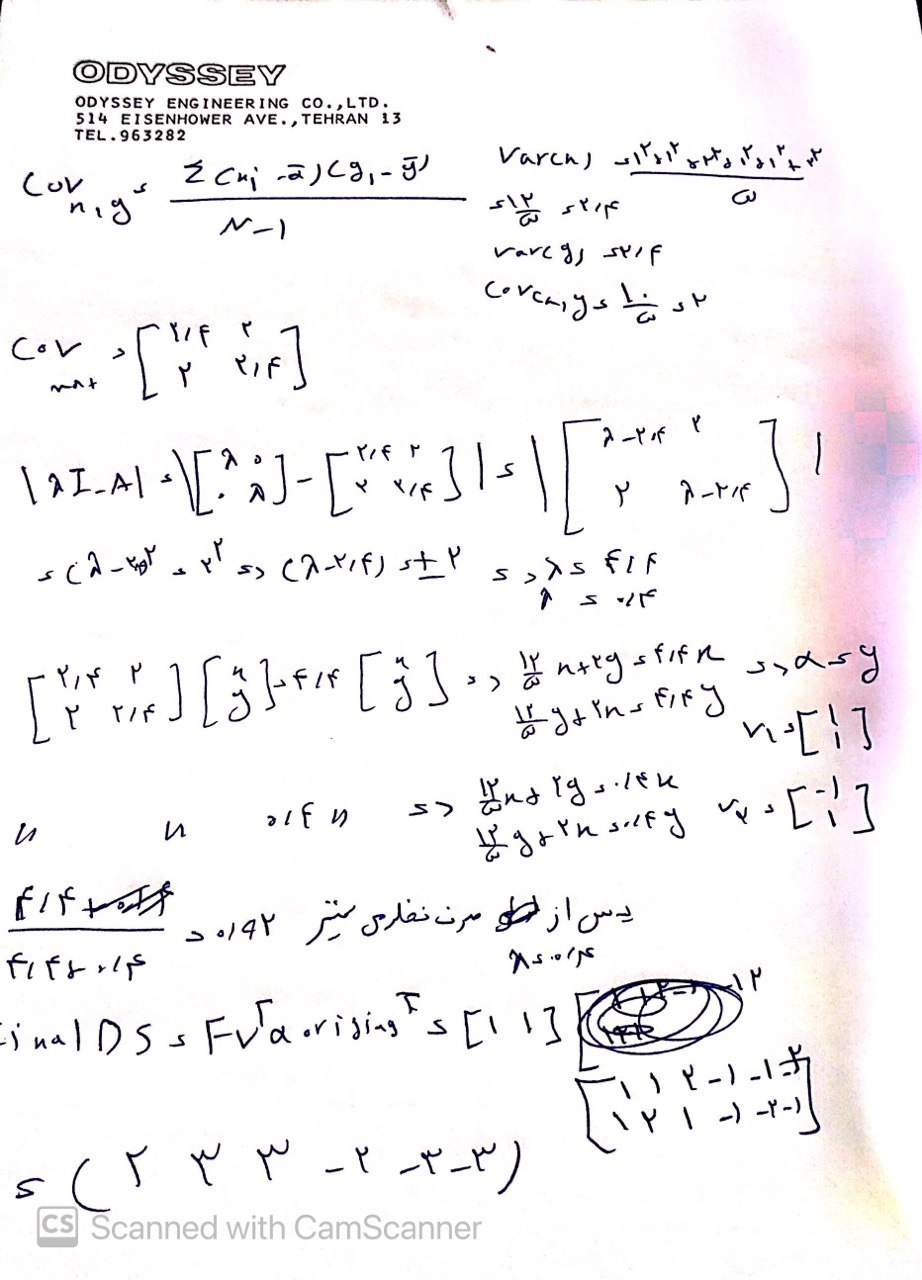 ODYSSEY
ODYSSEY ENGINEERING CO.,LTD.
514 EISENHOWER AVE.,TEHRAN 13
TEL.963282
Cov x,y = Σ(xi - x̄)(yi - ȳ) / N-1
Var(x) = ۱²+۱²+۲²+۱²+۱²+۲² / ۵
= ۱۲/۵ = ۲/۴
var(y) = ۲/۴
Cov(x,y) = ۱۰/۵ = ۲
Cov mat = [۲/۴ ۲
۲ ۲/۴]
|λI-A| = |[λ ۰
۰ λ] - [۲/۴ ۲
۲ ۲/۴]| = |[λ-۲/۴ ۲
۲ λ-۲/۴]|
= (λ-۲/۴)² = ۲² => (λ-۲/۴) = ±۲ => λ = ۴/۴
λ = ۰/۴
[۲/۴ ۲
۲ ۲/۴] [x
y] = ۴/۴ [x
y] => ۱۲/۵ x + ۲y = ۴/۴ x => x = y
۱۲/۵ y + ۲x = ۴/۴ y v₁ = [۱
۱]
" " ۰/۴ " => ۱۲/۵ x + ۲y = ۰/۴ x
۱۲/۵ y + ۲x = ۰/۴ y v₂ = [-۱
۱]
۴/۴ / ۴/۴ + ۰/۴ = ۰/۹۲ صرف نظر می کنیم پس از
λ = ۰/۴
Final DS = FVᵀ x originalᵀ = [۱ ۱]
[۱ ۱ ۲ -۱ -۱ -۲
۱ ۲ ۱ -۱ -۲ -۱]
= (۲ ۳ ۳ -۲ -۳ -۳)
CS Scanned with CamScanner